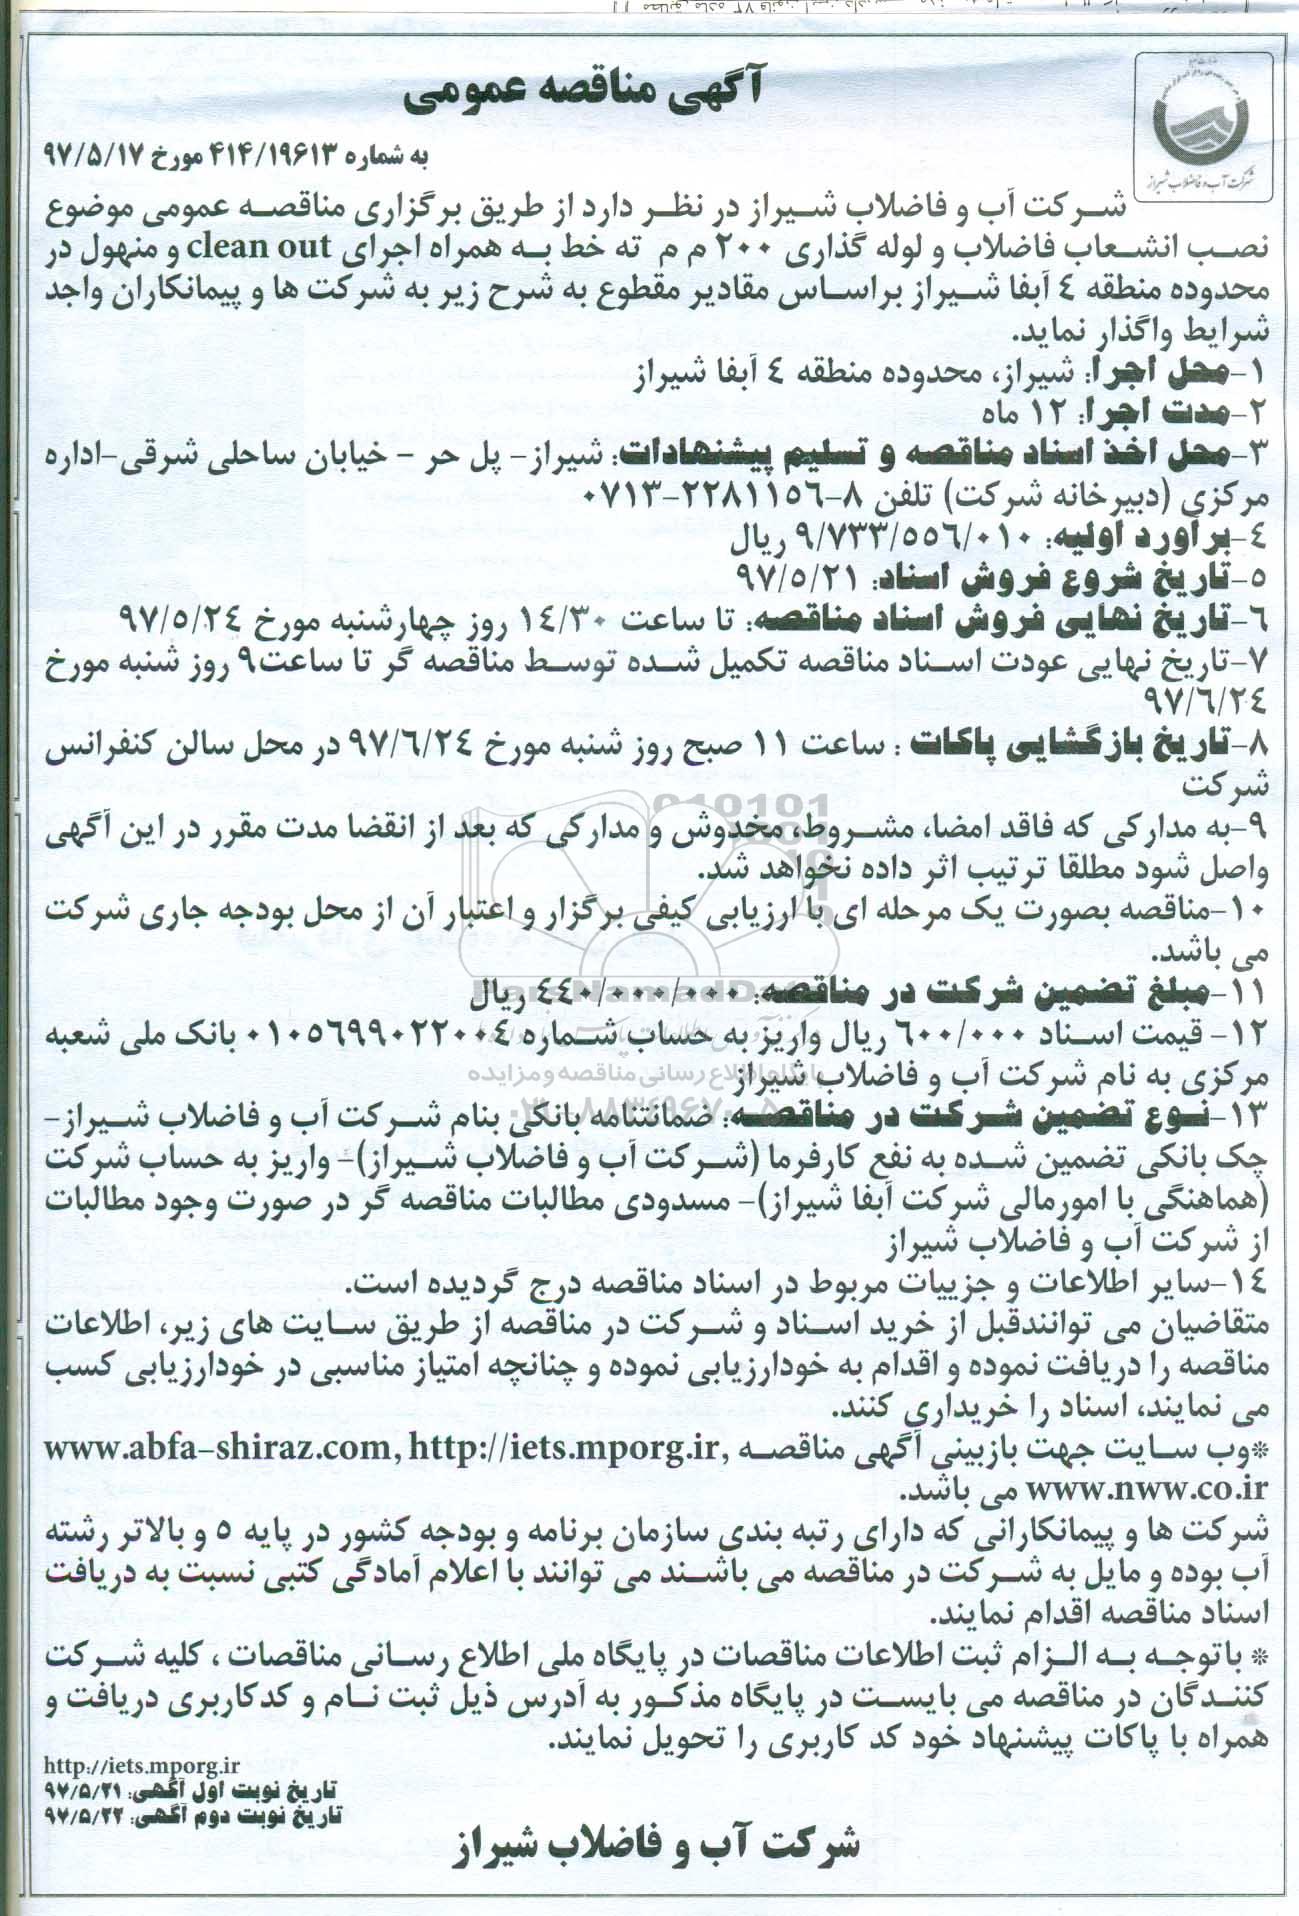 آگهی مناقصه عمومی
به شماره ۴۱۴/۱۹۶۱۳ مورخ ۹۷/۵/۱۷
شرکت آب و فاضلاب شیراز
شرکت آب و فاضلاب شیراز در نظر دارد از طریق برگزاری مناقصه عمومی موضوع
نصب انشعاب فاضلاب و لوله گذاری ۲۰۰ م م ته خط به همراه اجرای clean out و منهول در
محدوده منطقه ۴ آبفا شیراز براساس مقادیر مقطوع به شرح زیر به شرکت ها و پیمانکاران واجد
شرایط واگذار نماید.
۱-محل اجرا: شیراز، محدوده منطقه ۴ آبفا شیراز
۲-مدت اجرا: ۱۲ ماه
۳-محل اخذ اسناد مناقصه و تسلیم پیشنهادات: شیراز- پل حر - خیابان ساحلی شرقی-اداره
مرکزی (دبیرخانه شرکت) تلفن ۸-۲۲۸۱۱۵۶-۰۷۱۳
۴-برآورد اولیه: ۹/۷۳۳/۵۵۶/۰۱۰ ریال
۵-تاریخ شروع فروش اسناد: ۹۷/۵/۲۱
۶-تاریخ نهایی فروش اسناد مناقصه: تا ساعت ۱۴/۳۰ روز چهارشنبه مورخ ۹۷/۵/۲۴
۷-تاریخ نهایی عودت اسناد مناقصه تکمیل شده توسط مناقصه گر تا ساعت۹ روز شنبه مورخ
۹۷/۶/۲۴
۸-تاریخ بازگشایی پاکات : ساعت ۱۱ صبح روز شنبه مورخ ۹۷/۶/۲۴ در محل سالن کنفرانس
شرکت
۹-به مدارکی که فاقد امضا، مشروط، مخدوش و مدارکی که بعد از انقضا مدت مقرر در این آگهی
واصل شود مطلقا ترتیب اثر داده نخواهد شد.
۱۰-مناقصه بصورت یک مرحله ای با ارزیابی کیفی برگزار و اعتبار آن از محل بودجه جاری شرکت
می باشد.
ParsNamadData
۱۱-مبلغ تضمین شرکت در مناقصه: ۴۴۰/۰۰۰/۰۰۰ ریال
۱۲- قیمت اسناد ۶۰۰/۰۰۰ ریال واریز به حساب شماره ۰۱۰۵۶۹۹۰۲۲۰۰۴ بانک ملی شعبه
پایگاه اطلاع رسانی مناقصه و مزایده
مرکزی به نام شرکت آب و فاضلاب شیراز
۰۲۱-۸۸۳۴۹۶۷۰-۵
۱۳-نوع تضمین شرکت در مناقصه: ضمانتنامه بانکی بنام شرکت آب و فاضلاب شیراز-
چک بانکی تضمین شده به نفع کارفرما (شرکت آب و فاضلاب شیراز)- واریز به حساب شرکت
(هماهنگی با امورمالی شرکت آبفا شیراز)- مسدودی مطالبات مناقصه گر در صورت وجود مطالبات
از شرکت آب و فاضلاب شیراز
۱۴-سایر اطلاعات و جزییات مربوط در اسناد مناقصه درج گردیده است.
متقاضیان می توانندقبل از خرید اسناد و شرکت در مناقصه از طریق سایت های زیر، اطلاعات
مناقصه را دریافت نموده و اقدام به خودارزیابی نموده و چنانچه امتیاز مناسبی در خودارزیابی کسب
می نمایند، اسناد را خریداری کنند.
*وب سایت جهت بازبینی آگهی مناقصه www.abfa-shiraz.com, http://iets.mporg.ir,
www.nww.co.ir می باشد.
شرکت ها و پیمانکارانی که دارای رتبه بندی سازمان برنامه و بودجه کشور در پایه ۵ و بالاتر رشته
آب بوده و مایل به شرکت در مناقصه می باشند می توانند با اعلام آمادگی کتبی نسبت به دریافت
اسناد مناقصه اقدام نمایند.
* باتوجه به الزام ثبت اطلاعات مناقصات در پایگاه ملی اطلاع رسانی مناقصات ، کلیه شرکت
کنندگان در مناقصه می بایست در پایگاه مذکور به آدرس ذیل ثبت نام و کدکاربری دریافت و
همراه با پاکات پیشنهاد خود کد کاربری را تحویل نمایند.
http://iets.mporg.ir
تاریخ نوبت اول آگهی: ۹۷/۵/۲۱
تاریخ نوبت دوم آگهی: ۹۷/۵/۲۲
شرکت آب و فاضلاب شیراز